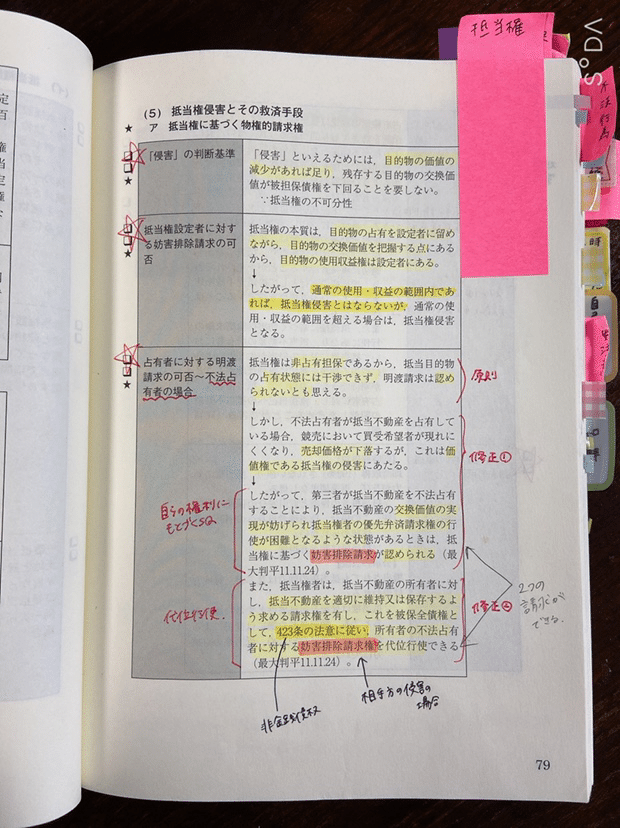 抵当権
SODA
(5) 抵当権侵害とその救済手段
ア 抵当権に基づく物権的請求権
「侵害」の判断基準
「侵害」といえるためには,目的物の価値の
減少があれば足り,残存する目的物の交換価
値が被担保債権を下回ることを要しない。
∵抵当権の不可分性
抵当権設定者に対す
る妨害排除請求の可
否
抵当権の本質は,目的物の占有を設定者に留め
ながら,目的物の交換価値を把握する点にある
から,目的物の使用収益権は設定者にある。
↓
したがって,通常の使用・収益の範囲内であ
れば,抵当権侵害とはならないが,通常の使
用・収益の範囲を超える場合は,抵当権侵害
となる。
占有者に対する明渡
請求の可否~不法占
有者の場合
抵当権は非占有担保であるから,抵当目的物
の占有状態には干渉できず,明渡請求は認め
られないとも思える。
原則
↓
しかし,不法占有者が抵当不動産を占有して
いる場合,競売において買受希望者が現れに
くくなり,売却価格が下落するが,これは価
値権である抵当権の侵害にあたる。
修正①
↓
したがって,第三者が抵当不動産を不法占有
することにより,抵当不動産の交換価値の実
現が妨げられ抵当権者の優先弁済請求権の行
使が困難となるような状態があるときは,抵
当権に基づく妨害排除請求が認められる(最
大判平11.11.24)。
自らの権利に
もとづく
また,抵当権者は,抵当不動産の所有者に対
し,抵当不動産を適切に維持又は保存するよ
う求める請求権を有し,これを被保全債権と
して,423条の法意に従い,所有者の不法占有
者に対する妨害排除請求権を代位行使できる
(最大判平11.11.24)。
代位行使
修正②
2つの
請求が
できる
非金銭債権
相手方の侵害の
場合
79